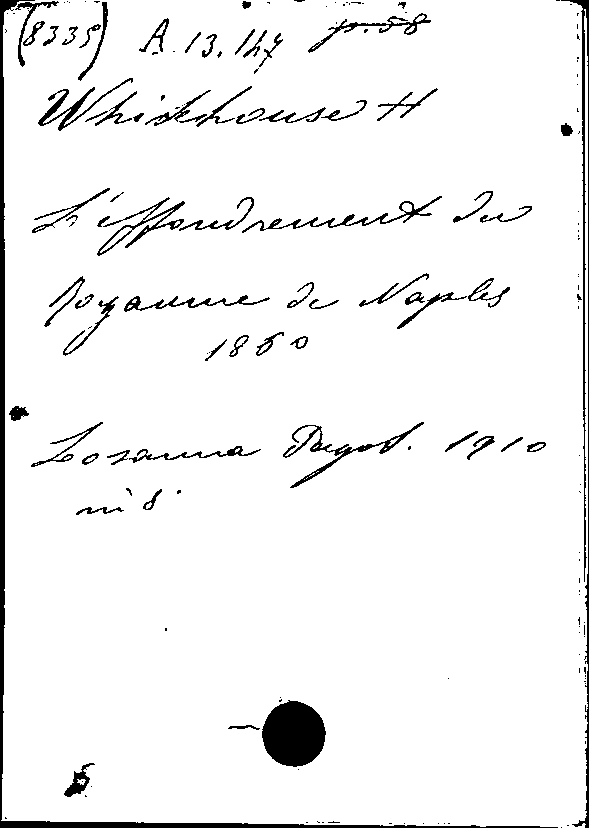 (8335) A 13.147 p. 58
Whitehouse H
L'effondrement du
Royaume de Naples
1860
Losanna Payot. 1910
in 8°